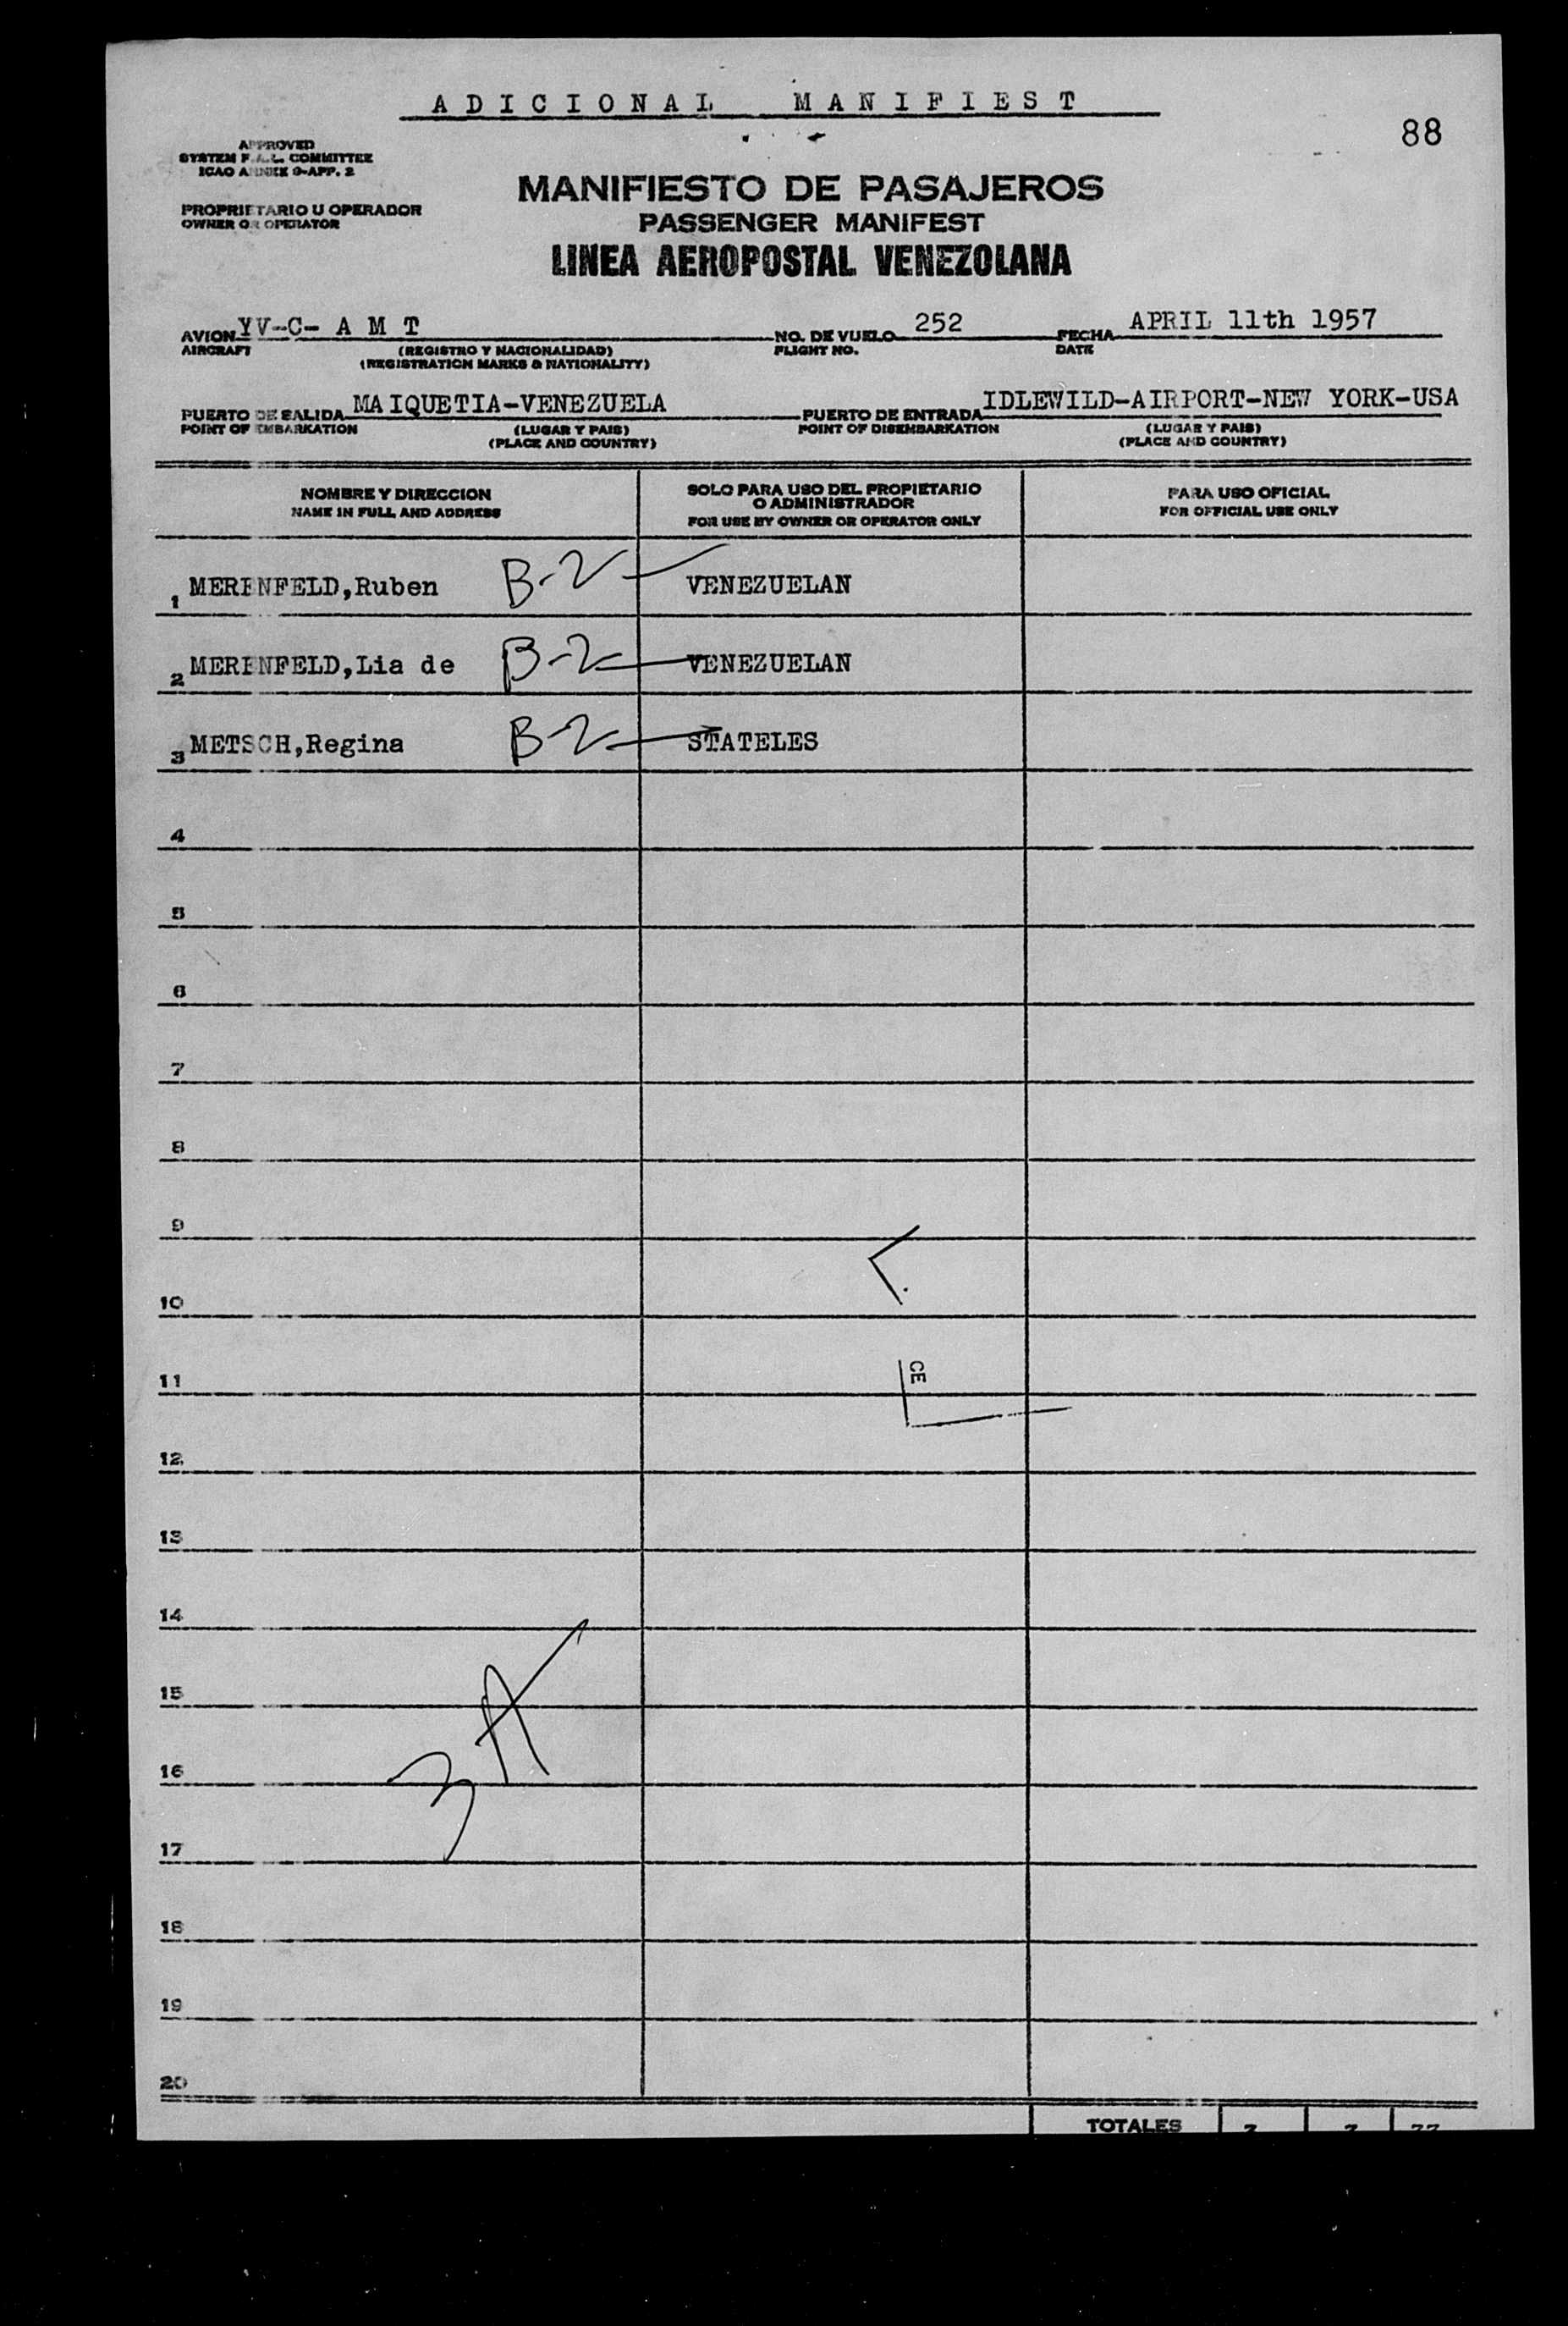 ADICIONAL MANIFIEST
88
APPROVED
SYSTEM F.A.L. COMMITTEE
ICAO ANNEX 9-APP. 2
PROPRIETARIO U OPERADOR
OWNER OR OPERATOR
MANIFIESTO DE PASAJEROS
PASSENGER MANIFEST
LINEA AEROPOSTAL VENEZOLANA
AVION YV-C- A M T NO. DE VUELO 252 FECHA APRIL 11th 1957
AIRCRAFT (REGISTRO Y NACIONALIDAD) FLIGHT NO. DATE
(REGISTRATION MARKS & NATIONALITY)
PUERTO DE SALIDA MAIQUETIA-VENEZUELA PUERTO DE ENTRADA IDLEWILD-AIRPORT-NEW YORK-USA
POINT OF EMBARKATION (LUGAR Y PAIS) POINT OF DISEMBARKATION (LUGAR Y PAIS)
(PLACE AND COUNTRY) (PLACE AND COUNTRY)
NOMBRE Y DIRECCION
NAME IN FULL AND ADDRESS
SOLO PARA USO DEL PROPIETARIO
O ADMINISTRADOR
FOR USE BY OWNER OR OPERATOR ONLY
PARA USO OFICIAL
FOR OFFICIAL USE ONLY
1 MERENFELD,Ruben B-2 VENEZUELAN
2 MERENFELD,Lia de B-2 VENEZUELAN
3 METSCH,Regina B-2 STATELES
4
5
6
7
8
9
10
11 CE
12
13
14
15
3 A
16
17
18
19
20
TOTALES